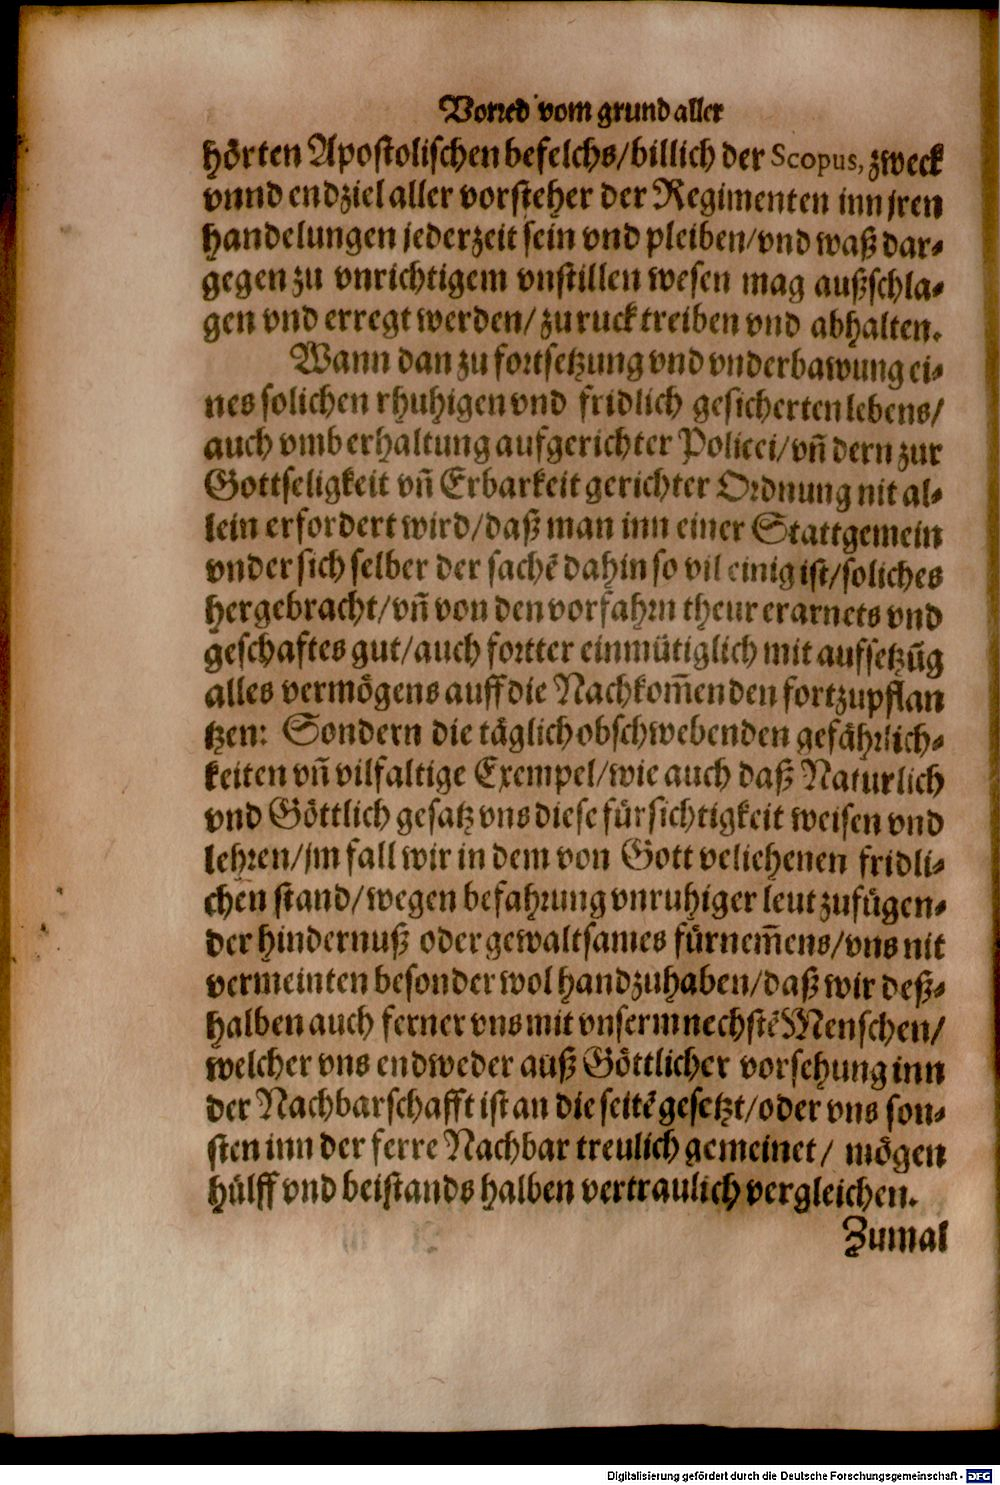 Vorred vom grund aller
hörten Apostolischen befelchs/billich der Scopus, zweck
vnnd endziel aller vorsteher der Regimenten inn jren
handelungen jederzeit sein vnd pleiben/vnd waß dar-
gegen zu vnrichtigem vnstillen wesen mag außschla-
gen vnd erregt werden/ zu ruck treiben vnd abhalten.
Wann dan zu fortsetzung vnd vnderbawung ei-
nes solichen rhuhigen vnd fridlich gesicherten lebens/
auch vmb erhaltung aufgerichter Policei/vñ dern zur
Gottseligkeit vñ Erbarkeit gerichter Ordnung nit al-
lein erfordert wird/daß man inn einer Stattgemein
vnder sich selber der sachẽ dahin so vil einig ist/soliches
hergebracht/vñ von den vorfahrn theur erarnets vnd
geschaftes gut/auch fortter einmütiglich mit aufsetzũg
alles vermögens auff die Nachkom̃enden fortzupflan
tzen: Sondern die täglich obschwebenden gefährlich-
keiten vñ vilfaltige Exempel/wie auch daß Naturlich
vnd Göttlich gesatz vns diese fürsichtigkeit weisen vnd
lehren/jm fall wir in dem von Gott veliehenen fridli-
chen stand/wegen befahrung vnruhiger leut zufügen-
der hindernuß oder gewaltsames fürnem̃ens/vns nit
vermeinten besonder wol handzuhaben/daß wir deß-
halben auch ferner vns mit vnserm nechstẽ Menschen/
welcher vns endweder auß Göttlicher vorsehung inn
der Nachbarschafft ist an die seitẽ gesetzt/oder vns son-
sten inn der ferre Nachbar treulich gemeinet/ mögen
hülff vnd beistands halben vertraulich vergleichen.
Zumal
Digitalisierung gefördert durch die Deutsche Forschungsgemeinschaft - DFG